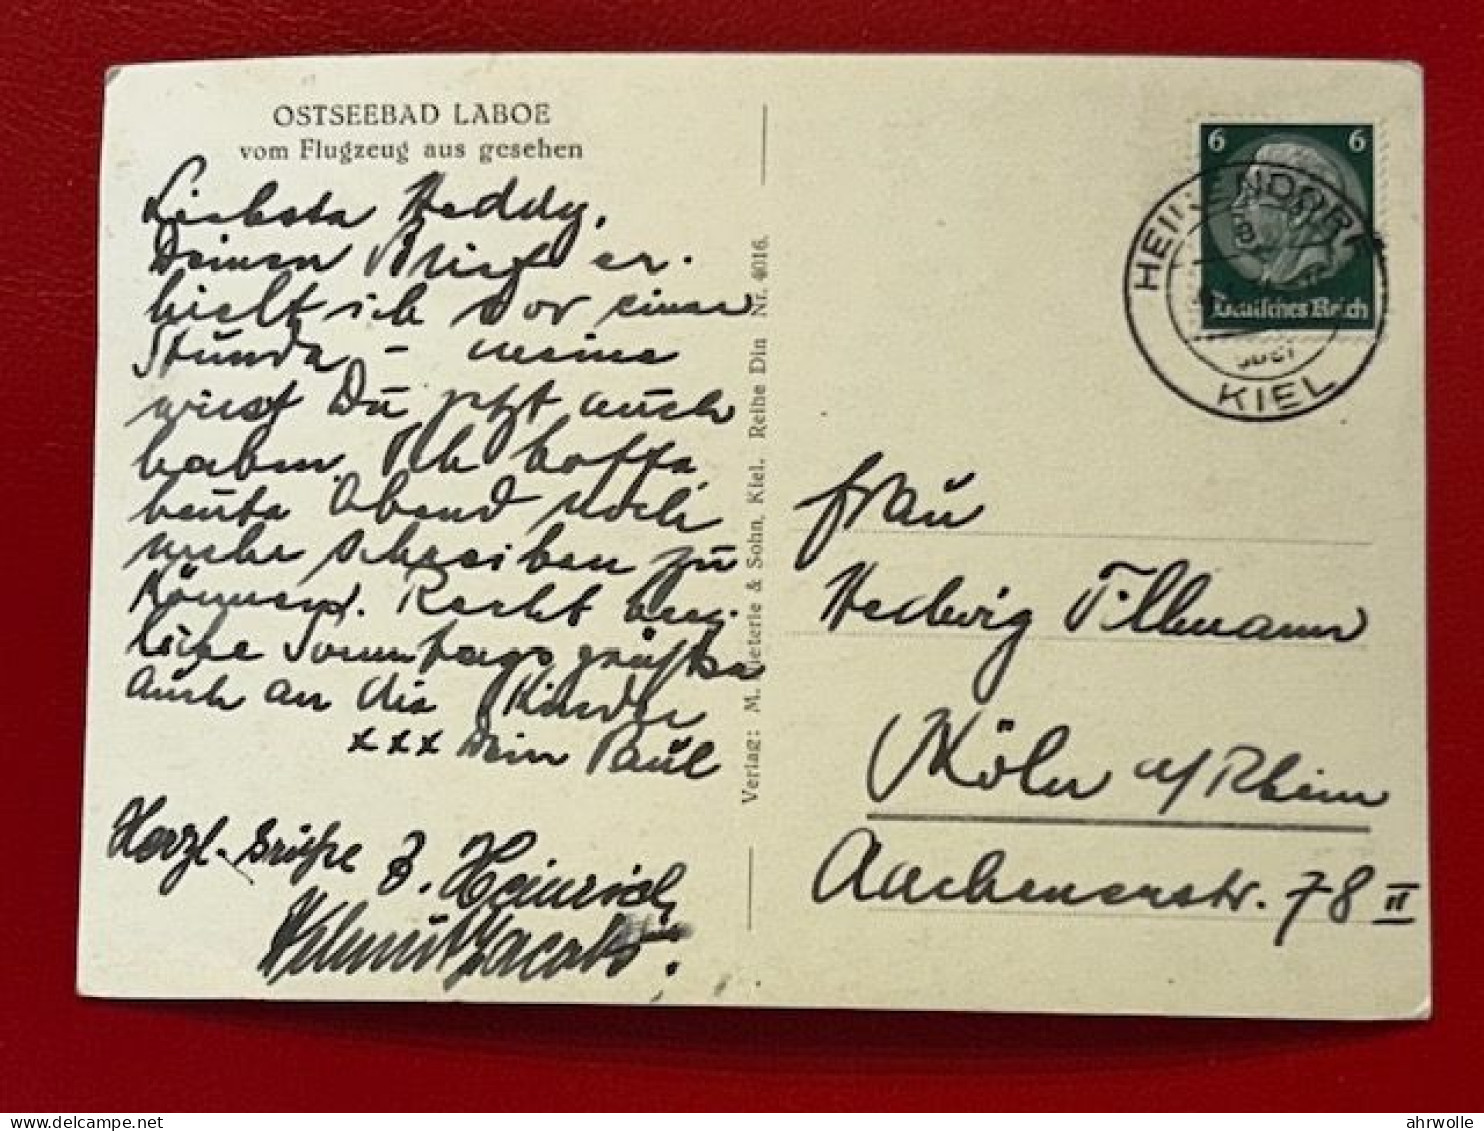 OSTSEEBAD LABOE
vom Flugzeug aus gesehen
Liebste Heddy,
Deinen Brief er-
hielt ich vor einer
Stunde - meine
wirst Du jetzt auch
haben. Ich hoffe
heute Abend noch
mehr schreiben zu
können. Recht herz-
liche Sonntagsgrüße
auch an die Kinder
xxx Dein Paul
Herzl. Grüße
Heinrich
Helmut Jacobs
Verlag: M. Dieterle & Sohn, Kiel. Reihe Din Nr. 4016.
6 6
Deutsches Reich
HEIKENDORF
KIEL
Frau
Hedwig Tillmann
Köln a/Rhein
Aachenerstr. 78 II
ahrwolle